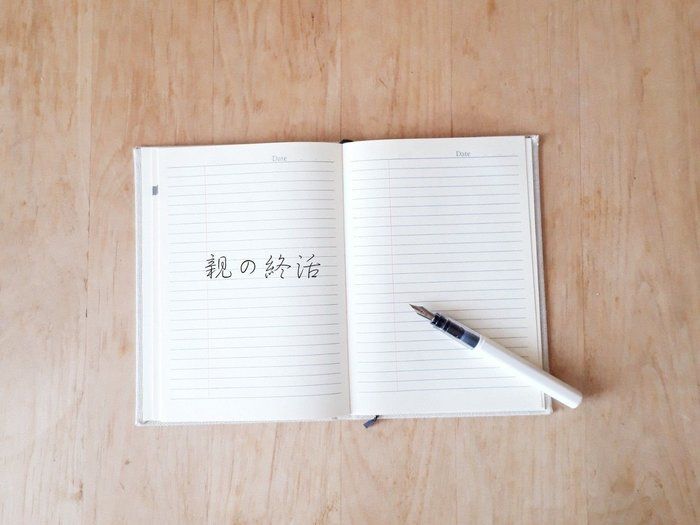 Date
Date
親の終活